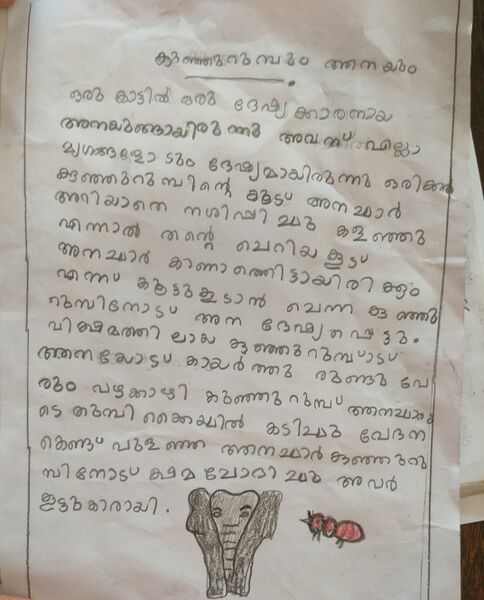 കുഞ്ഞുറുമ്പും ആനയും
ഒരു കാട്ടിൽ ഒരു ദേഷ്യക്കാരനായ
ആനയുണ്ടായിരുന്നു അവന് എല്ലാ
മൃഗങ്ങളോടും ദേഷ്യമായിരുന്നു ഒരിക്കൽ
കുഞ്ഞുറുമ്പിന്റെ കൂട് ആനച്ചാർ
അറിയാതെ നശിപ്പിച്ചു കളഞ്ഞു
എന്നാൽ തന്റെ ചെറിയ കൂട്
ആനച്ചാർ കാണാത്തിട്ടായിരിക്കും
എന്ന് കൂട്ടുകൂടാൻ ചെന്ന കുഞ്ഞു
റുമ്പിനോട് ആന ദേഷ്യപ്പെട്ടും.
വിക്ഷമത്തിലായ കുഞ്ഞുറുമ്പ്
ആനയോട് കായർത്തു രുണ്ടു പേ
രും വഴക്കായി കുഞ്ഞുറുമ്പ് ആനച്ചാരു
ടെ തുമ്പിക്കൈയിൽ കടിച്ചു വേദന
കൊണ്ട് പുളഞ്ഞ ആനച്ചാർ കുഞ്ഞുറു
മ്പിനോട് ക്ഷമ ചോദിച്ചു അവർ
ഇട്ടുകാരായി.